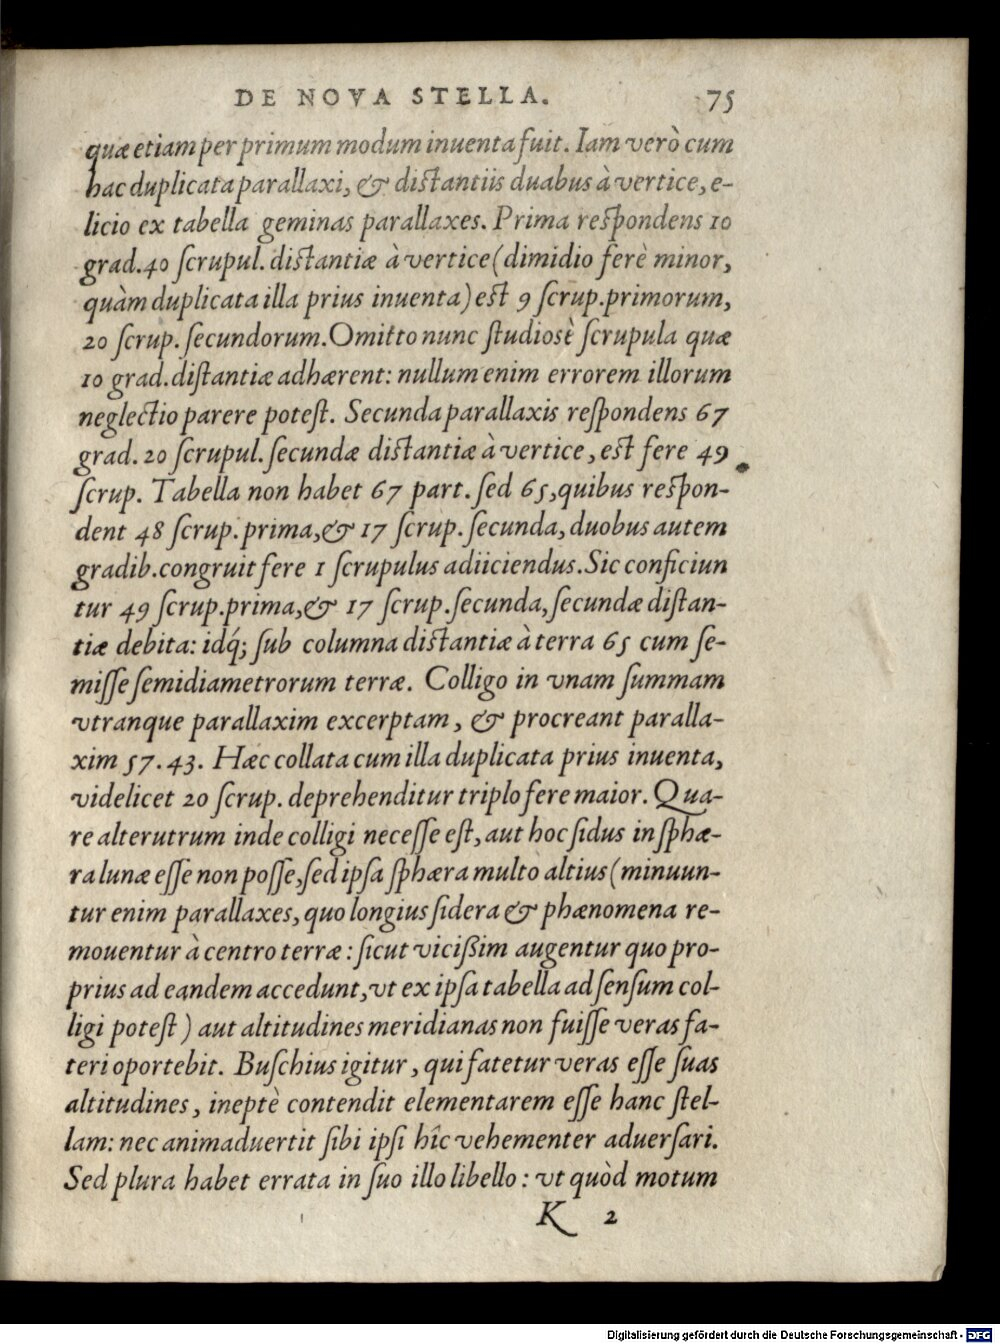 DE NOVA STELLA. 75
quæ etiam per primum modum inuenta fuit. Iam verò cum
hac duplicata parallaxi, & distantiis duabus à vertice, e-
licio ex tabella geminas parallaxes. Prima respondens 10
grad. 40 scrupul. distantiæ à vertice (dimidio ferè minor,
quàm duplicata illa prius inuenta) est 9 scrup. primorum,
20 scrup. secundorum. Omitto nunc studiosè scrupula quæ
10 grad. distantiæ adhærent: nullum enim errorem illorum
neglectio parere potest. Secunda parallaxis respondens 67
grad. 20 scrupul. secundæ distantiæ à vertice, est fere 49
scrup. Tabella non habet 67 part. sed 65, quibus respon-
dent 48 scrup. prima, & 17 scrup. secunda, duobus autem
gradib. congruit fere 1 scrupulus adiiciendus. Sic conficiun
tur 49 scrup. prima, & 17 scrup. secunda, secundæ distan-
tiæ debita: idq́; sub columna distantiæ à terra 65 cum se-
misse semidiametrorum terræ. Colligo in vnam summam
vtranque parallaxim excerptam, & procreant paralla-
xim 57. 43. Hæc collata cum illa duplicata prius inuenta,
videlicet 20 scrup. deprehenditur triplo fere maior. Qua-
re alterutrum inde colligi necesse est, aut hoc sidus in sphæ-
ra lunæ esse non posse, sed ipsa sphæra multò altius (minuun-
tur enim parallaxes, quo longius sidera & phænomena re-
mouentur à centro terræ: sicut vicißim augentur quo pro-
prius ad eandem accedunt, vt ex ipsa tabella ad sensum col-
ligi potest) aut altitudines meridianas non fuisse veras fa-
teri oportebit. Buschius igitur, qui fatetur veras esse suas
altitudines, ineptè contendit elementarem esse hanc stel-
lam: nec animaduertit sibi ipsi hîc vehementer aduersari.
Sed plura habet errata in suo illo libello: vt quòd motum
K 2
Digitalisierung gefördert durch die Deutsche Forschungsgemeinschaft - DFG